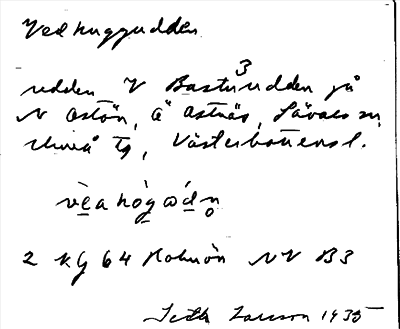 Vedhuggudden
udden V Bastuudden på
3
N Ostön, å Ostnäs, Sävars sn,
Umeå tg, Västerbottens l.
2 kg 64 Holmön NV B3
Seth Larsson 1935